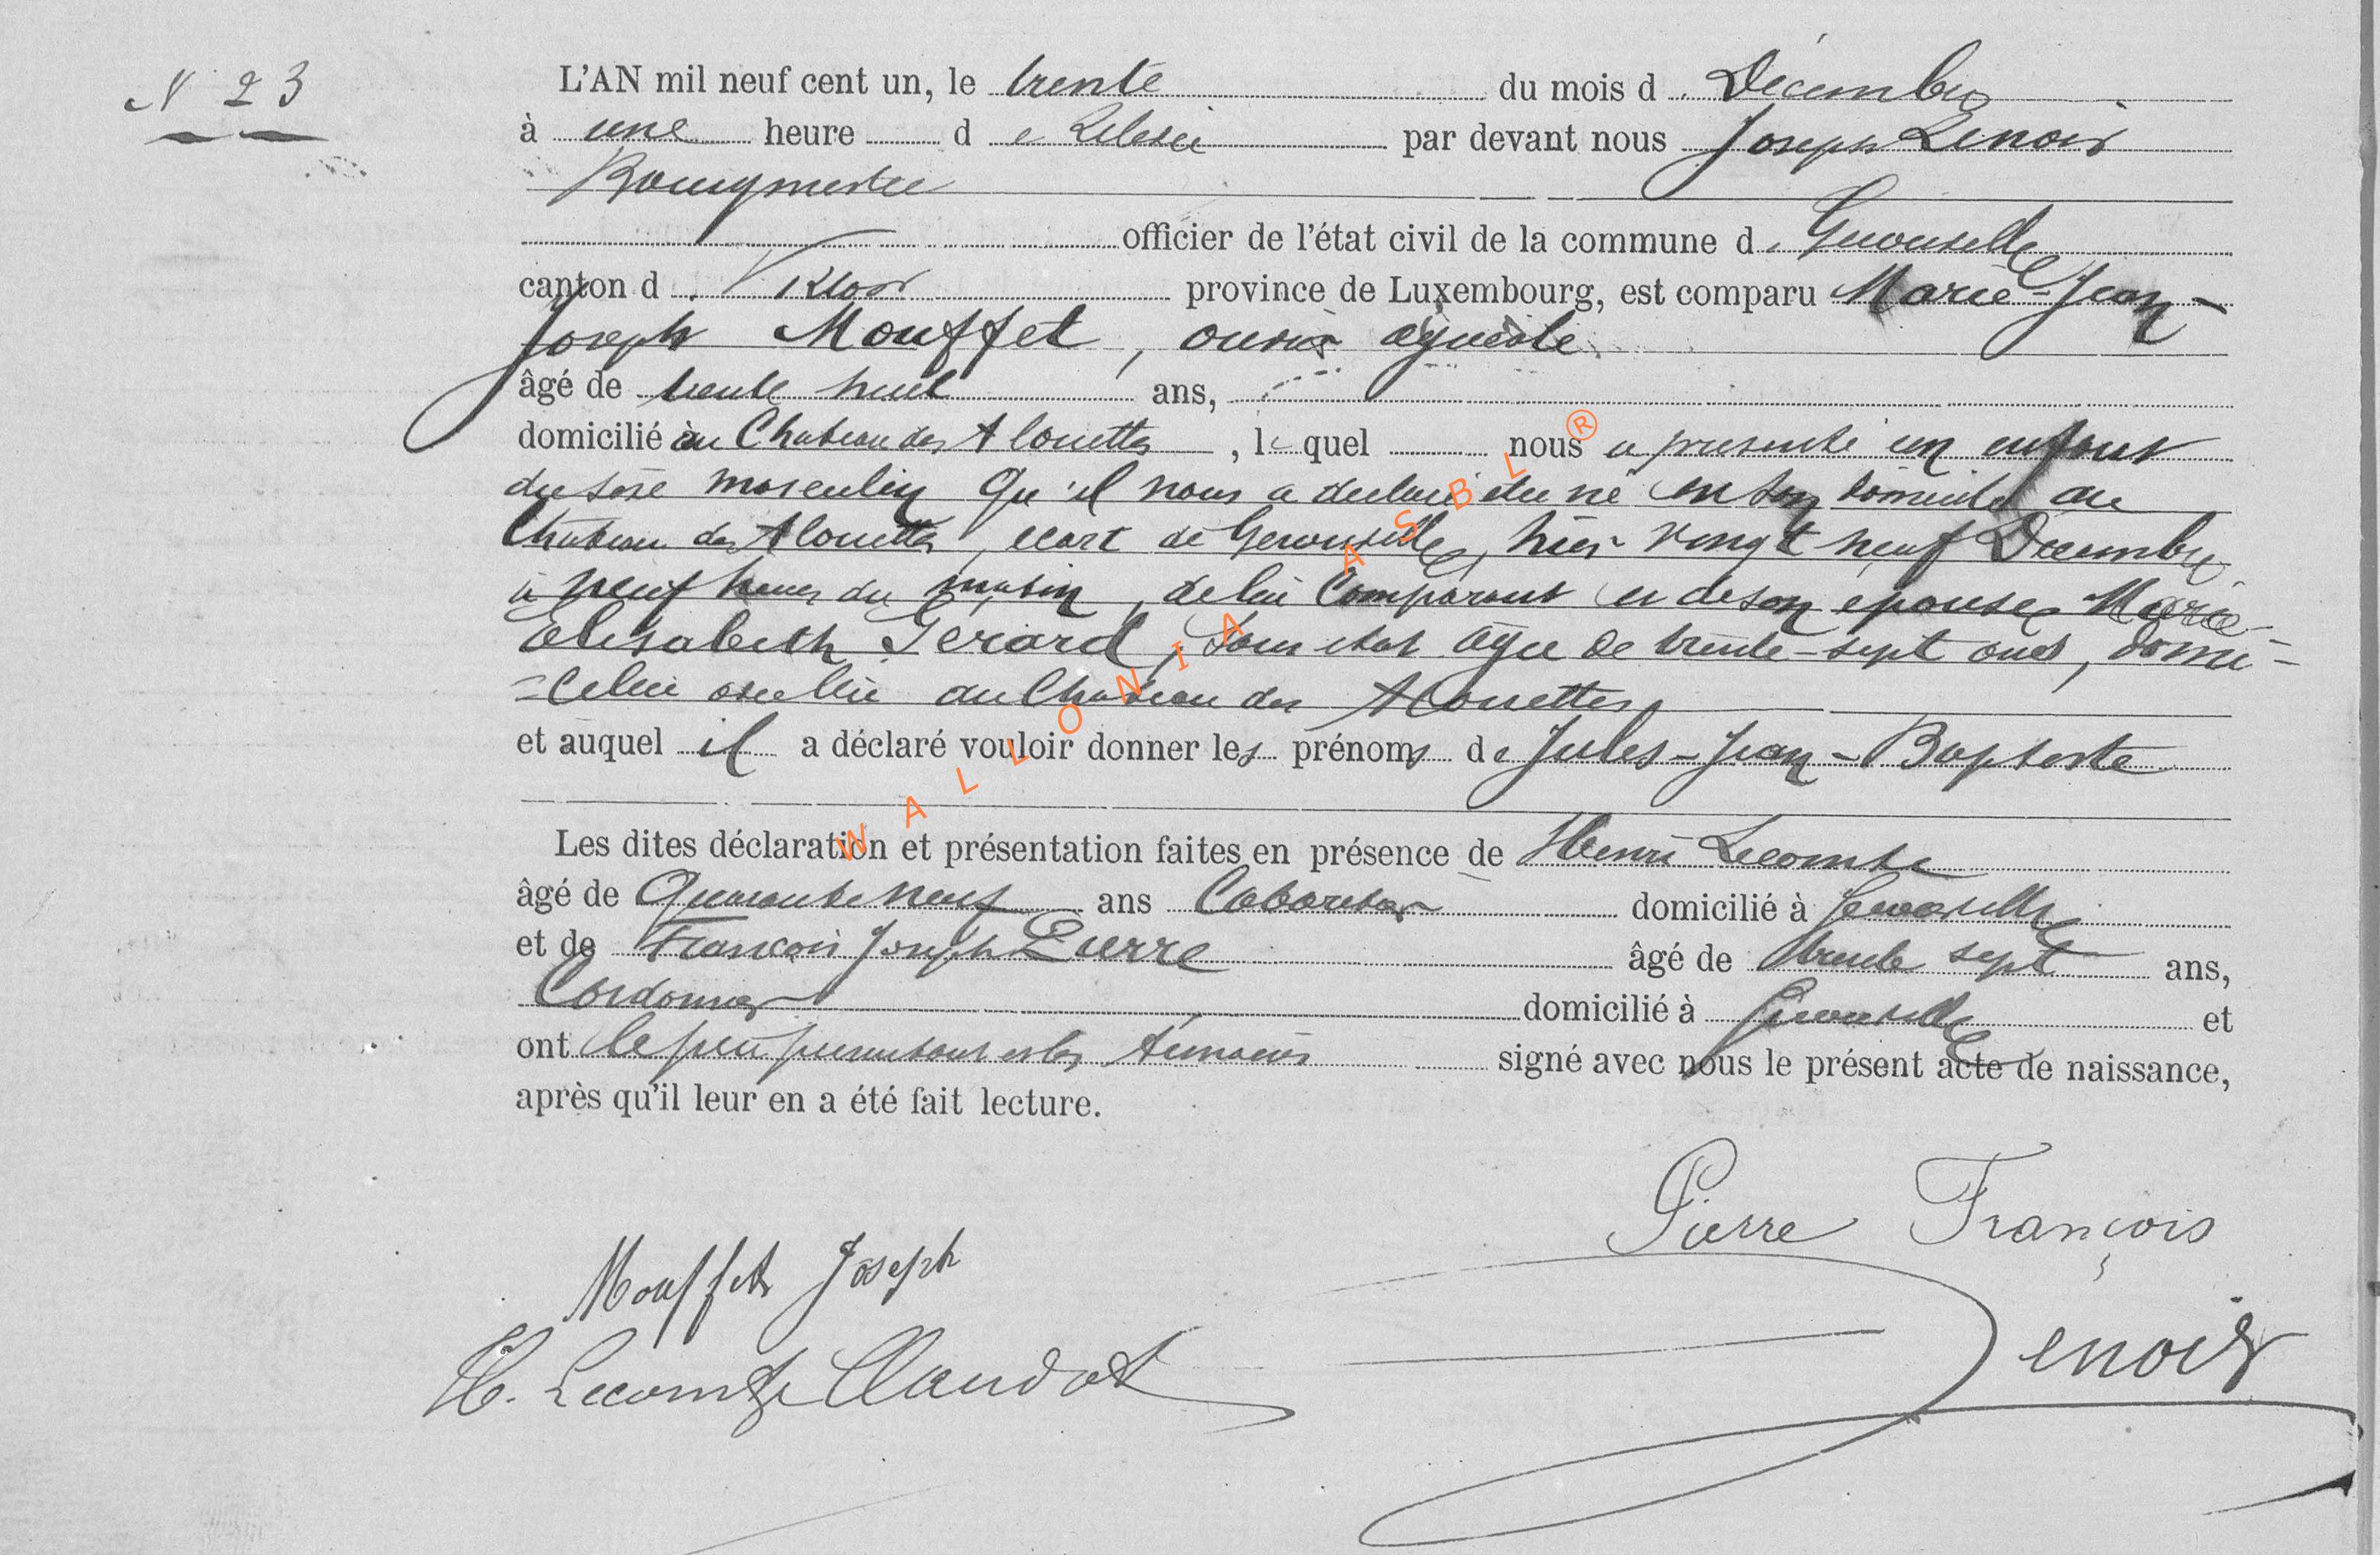 N 23
L'AN mil neuf cent un, le trente du mois de Décembre
à une heure de Relevée par devant nous Joseph Lenoir
Bourgmestre
officier de l'état civil de la commune de Gerouville
canton de Virton province de Luxembourg, est comparu Marie-Jean-
Joseph Mouffet, ouvrier agricole
âgé de trente huit ans,
domicilié au Chateau des Alouettes, lequel nous a presenté un enfant
du sexe masculin Qu'il nous a declaré etre né en son domicile au
Chateau des Alouettes, ecart de Gerouville, hier vingt neuf Decembre
à neuf heures du matin, de lui Comparant et de son epouse Marie-
Elisabeth Gerard, Sans etat agée de trente-sept ans, domi-
-ciliée avec lui au Chateau des Alouettes
et auquel il a déclaré vouloir donner les prénoms de Jules-Jean-Baptiste
Les dites déclaration et présentation faites en présence de Henri Lecomte
âgé de Quarante neuf ans Cabaretier domicilié à Gerouville
et de François Joseph Pierre âgé de trente sept ans,
Cordonnier domicilié à Gerouville et
ont le père presentant et les témoins signé avec nous le présent acte de naissance,
après qu'il leur en a été fait lecture.
Pierre François
Mouffet Joseph
Lenoir
H. Lecomte Claudot
WALLONIA ASBL ®